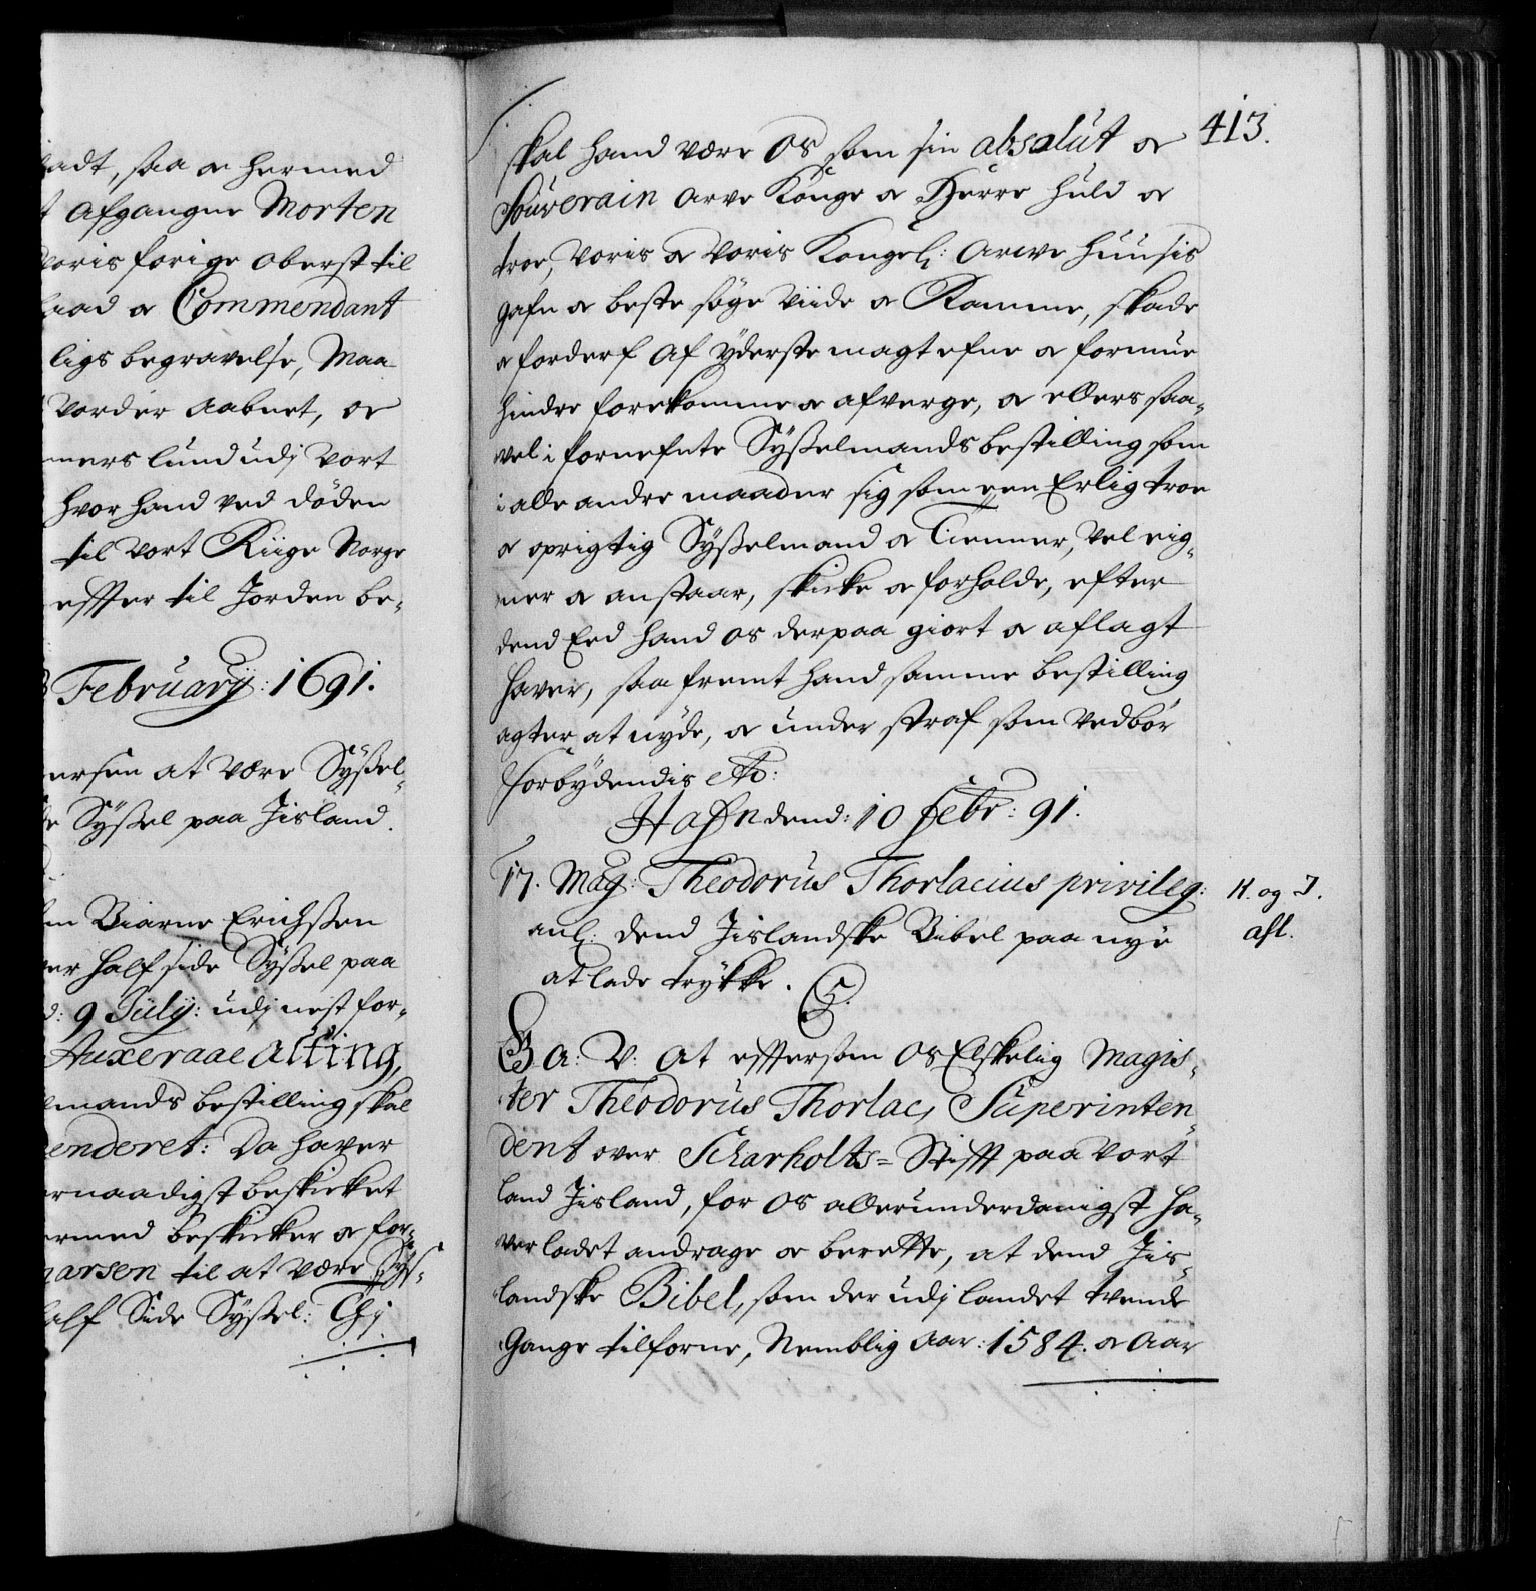 adt, saa er hermed
afgangne Morten
voris forige Oberst til
Commendant
ligs begravelse, Maa
vorder aabnet, oc
lund udj vort
hvor hand ved döden
til vort Riige Norge
effter til Jorden be-
February: 1691.
ersen at være Sÿssel-
Sÿssel paa Jisland.
Biarne Erichssen
half side Sÿssel paa
9 Julÿ: udj nest for-
Auxeraae alting,
mands bestilling skal
enderet: Da hafver
naadigst beskicket
ermed beskicker oc for-
arsen til at være Sÿs-
alf Side Sÿssel: Thj
413.
skal hand være Os som sin absolut oc
Souverain arve Konge oc Herre huld oc
troe, voris oc voris Kongel: arve Huusis
gafn oc beste söge viide oc Ramme, skade
oc forderf af ÿderste magt efne oc formue
hindre forekomme oc afverge, oc ellers saa-
vel i fornefnte Sÿsselmands bestilling som
i alle andre maader sig som een Erlig troe
oc oprigtig Sÿsselmand oc Tienner, vel eig-
ner oc anstaar, skicke oc forholde, efter
dend Eed hand os derpaa giort oc aflagt
hafver, saa fremt hand samme bestilling
agter at nÿde, oc under straf som vedbör
forbÿdendis etc:
Hafn dend: 10 Febr: 91.
17. Mag: Theodorus Thorlacius privileg:
anl: dend Jislandske Bibel paa nye
at lade trÿkke.
H. og J.
afl.
G. a: V: at efftersom Os Elskelig Magis-
ter Theodorus Thorlac, Superinten-
dent over Scharholts- Stifft paa vort
land Jisland, for Os allerunderdanigst ha-
ver ladet andrage oc berette, at dend Jis-
landske Bibel, som der udj landet tvende
Gange tilforne, Nemblig Aar: 1584. oc Aar